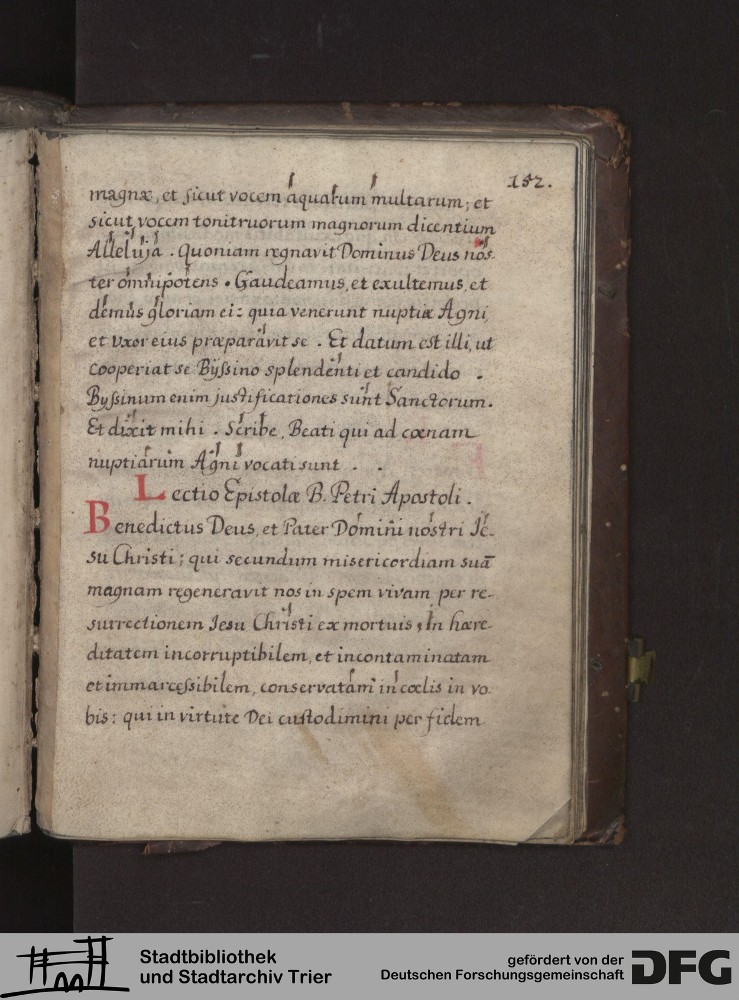 152.
magnæ, et sicut vocem aquarum multarum; et
sicut vocem tonitruorum magnorum dicentium
Alleluja . Quoniam regnavit Dominus Deus nos-
ter omnipotens . Gaudeamus, et exultemus, et
demus gloriam ei: quia venerunt nuptiæ Agni,
et Vxor eius præparavit se . Et datum est illi, ut
cooperiat se Byssino splendenti et candido .
Byssinum enim justificationes sunt Sanctorum.
Et dixit mihi . Scribe, Beati qui ad cœnam
nuptiarum Agni vocati sunt . .
Lectio Epistolæ B. Petri Apostoli .
Benedictus Deus, et Pater Domini nostri Je-
su Christi; qui secundum misericordiam suā
magnam regeneravit nos in spem vivam per re-
surrectionem Jesu Christi ex mortuis, In hære
ditatem incorruptibilem, et incontaminatam
et immarcessibilem, conservatam in cœlis in vo
bis: qui in virtute Dei custodimini per fidem
Stadtbibliothek
und Stadtarchiv Trier
gefördert von der
Deutschen Forschungsgemeinschaft
DFG